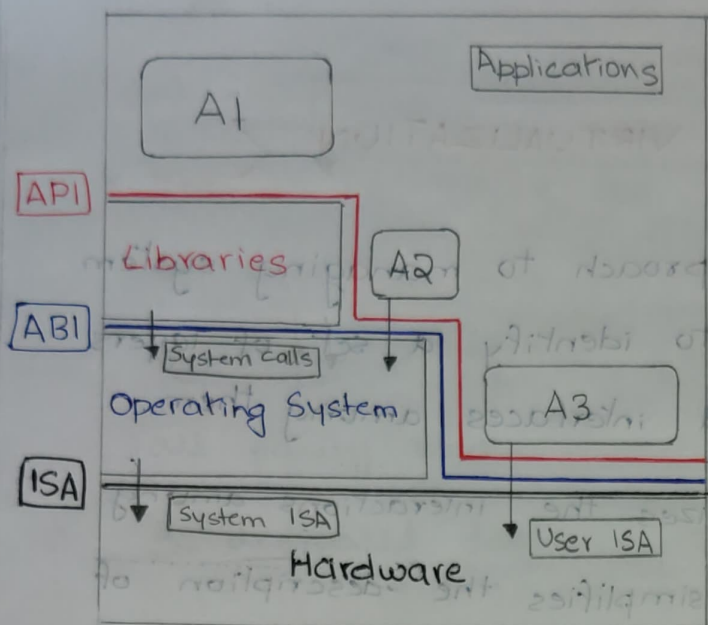 Applications
A1
API
Libraries
A2
ABI
System calls
Operating System
A3
ISA
System ISA
User ISA
Hardware